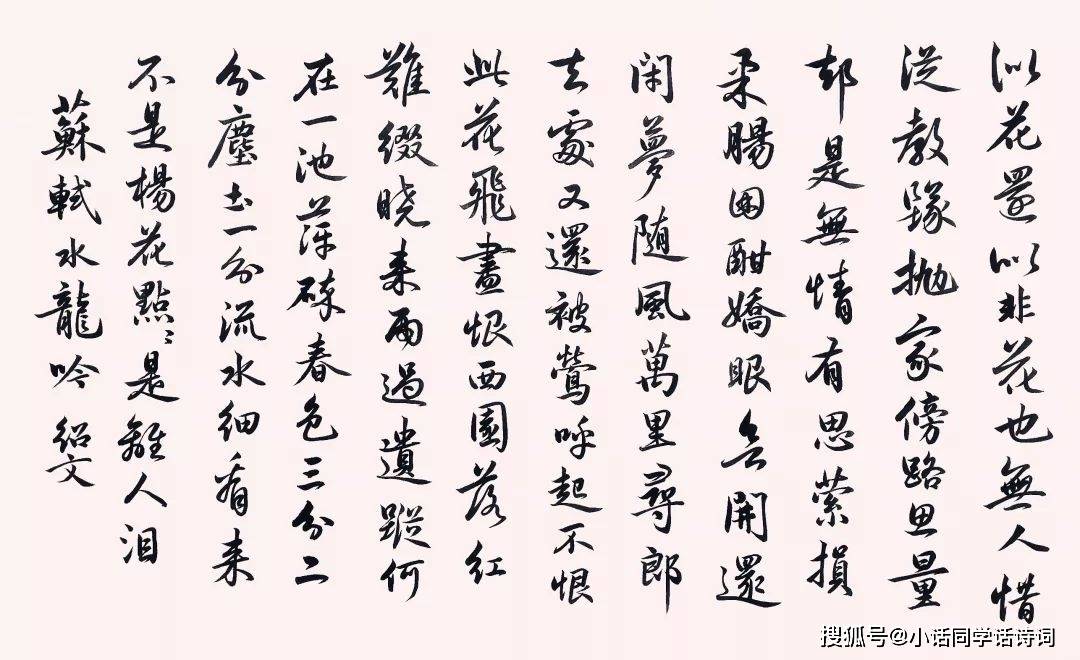 似花還似非花也無人惜
從教墜拋家傍路思量
却是無情有思縈損
柔腸困酣嬌眼欲開還
閑夢随風萬里尋郎
去處又還被鶯呼起不恨
此花飛盡恨西園落紅
難綴晓来雨過遺蹤何
在一池萍碎春色三分二
分塵土一分流水細看来
不是楊花點〻是離人淚
蘇軾水龍吟 紹文
搜狐号@小话同学话诗词